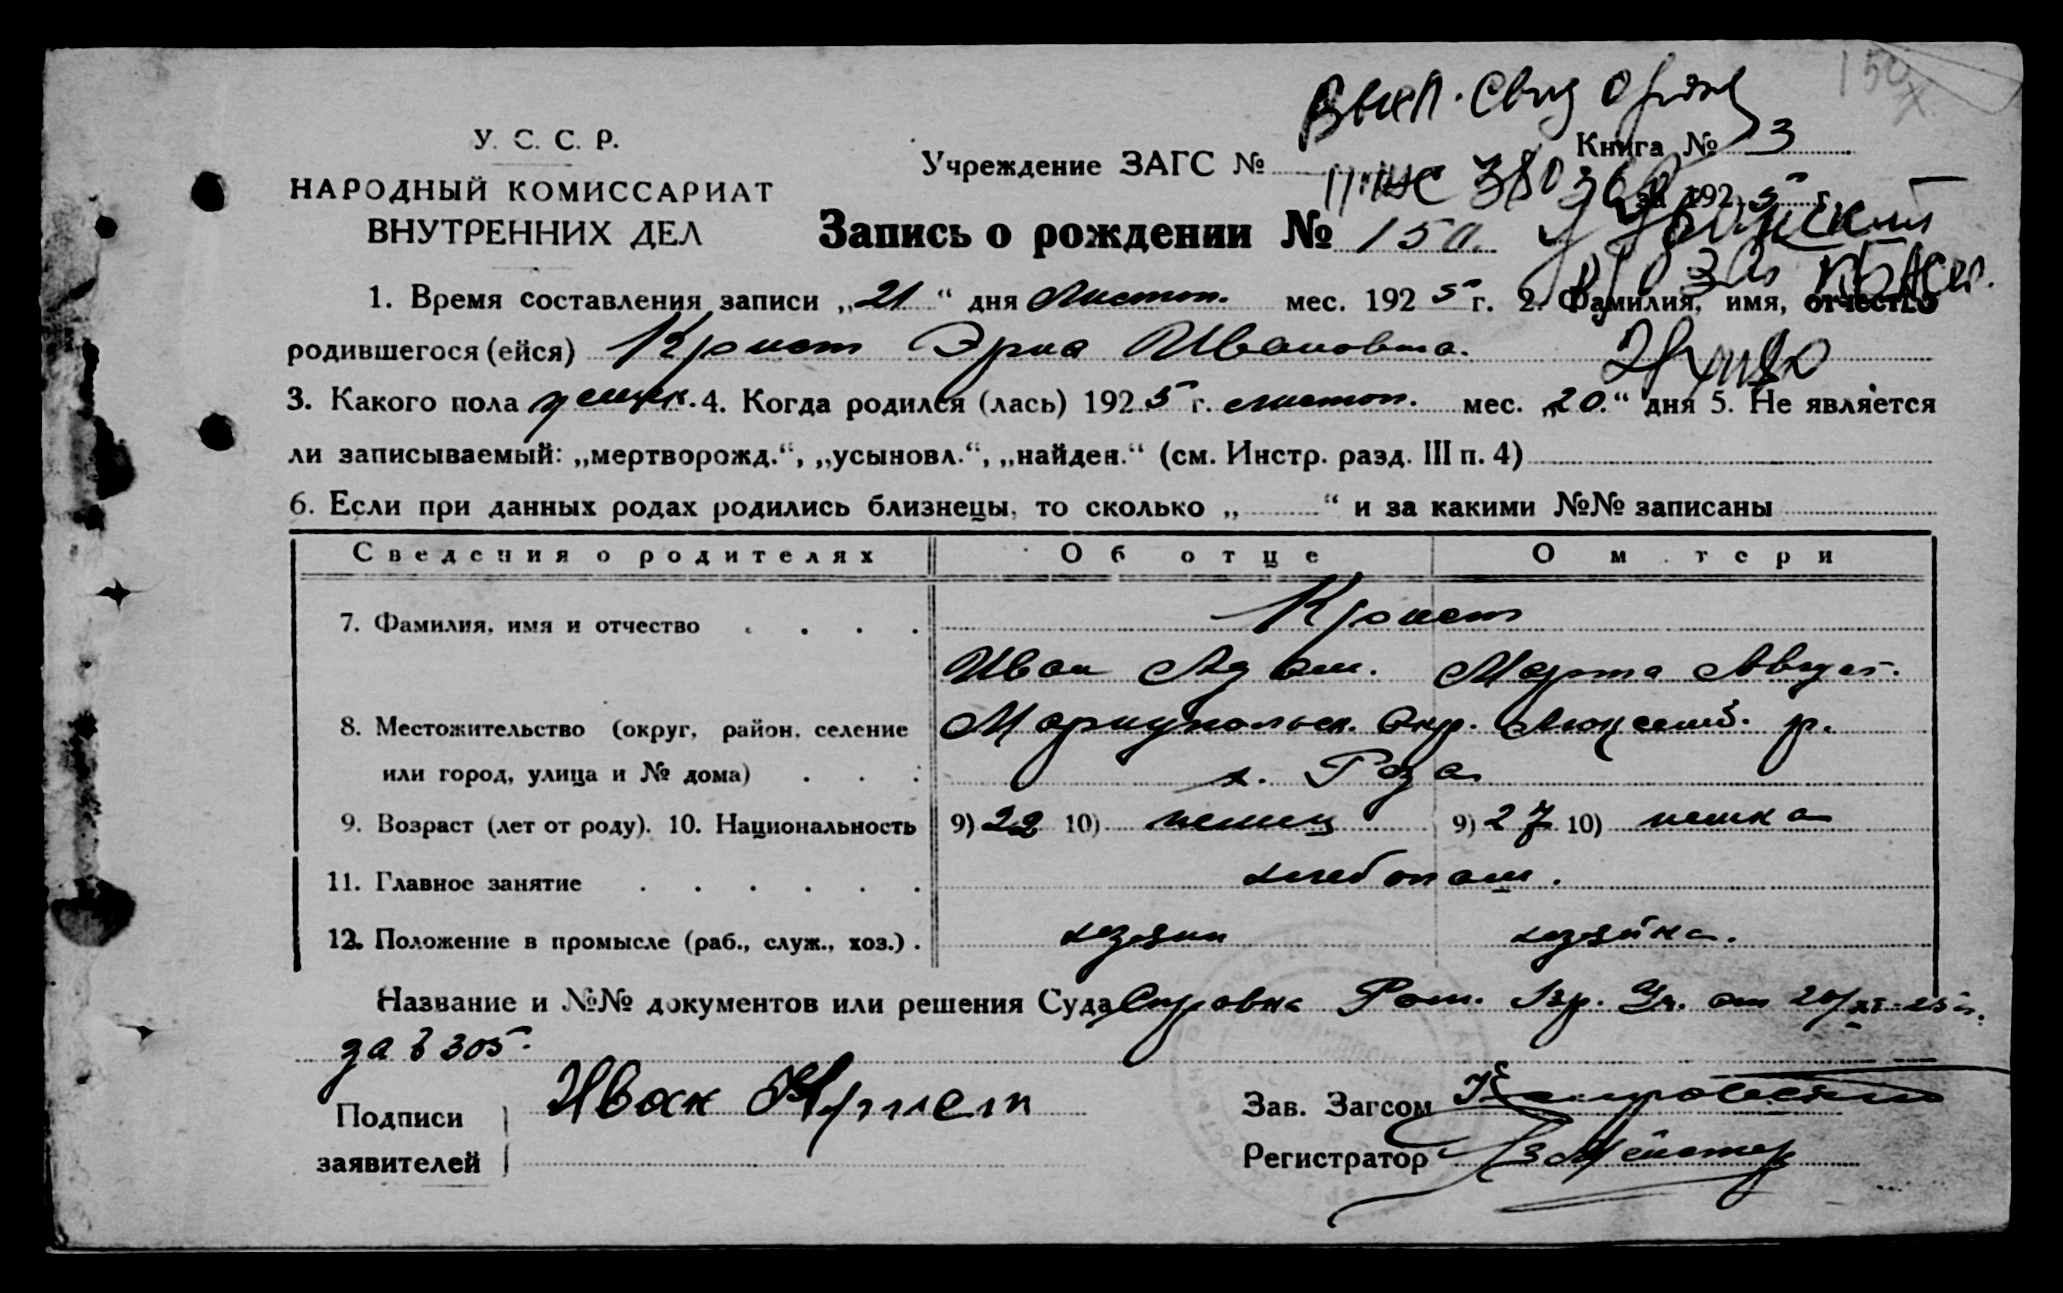 Выкл. Свид о рожд
У. С. С. Р.
НАРОДНЫЙ КОМИССАРИАТ
ВНУТРЕННИХ ДЕЛ
Учреждение ЗАГС №
Книга № 3
за 192 5 г.
Запись о рождении № 150
1. Время составления записи „21“ дня Листоп. мес. 192 5 г. 2. Фамилия, имя, отчество
родившегося (ейся) Крист Эрна Ивановна.
3. Какого пола женск. 4. Когда родился (лась) 192 5 г. листоп. мес. „20.“ дня 5. Не является
ли записываемый: „мертворожд.“, „усыновл.“, „найден.“ (см. Инстр. разд. III п. 4)
6. Если при данных родах родились близнецы, то сколько „ “ и за какими №№ записаны
Сведения о родителях Об отце О м тери
7. Фамилия, имя и отчество Крист
Иван Адам. Марта Август.
8. Местожительство (округ, район, селение Мариупольск. Окр. Люксемб. р.
или город, улица и № дома) х. Роза
9. Возраст (лет от роду). 10. Национальность 9) 22 10) немец 9) 27 10) немка
11. Главное занятие хлебопаш.
12. Положение в промысле (раб., служ., хоз.) хозяин хозяйка.
Название и №№ документов или решения Суда Справка от 20/XI-25 г.
за № 305.
Подписи Иван Крист Зав. Загсом
заявителей Регистратор Мейстер